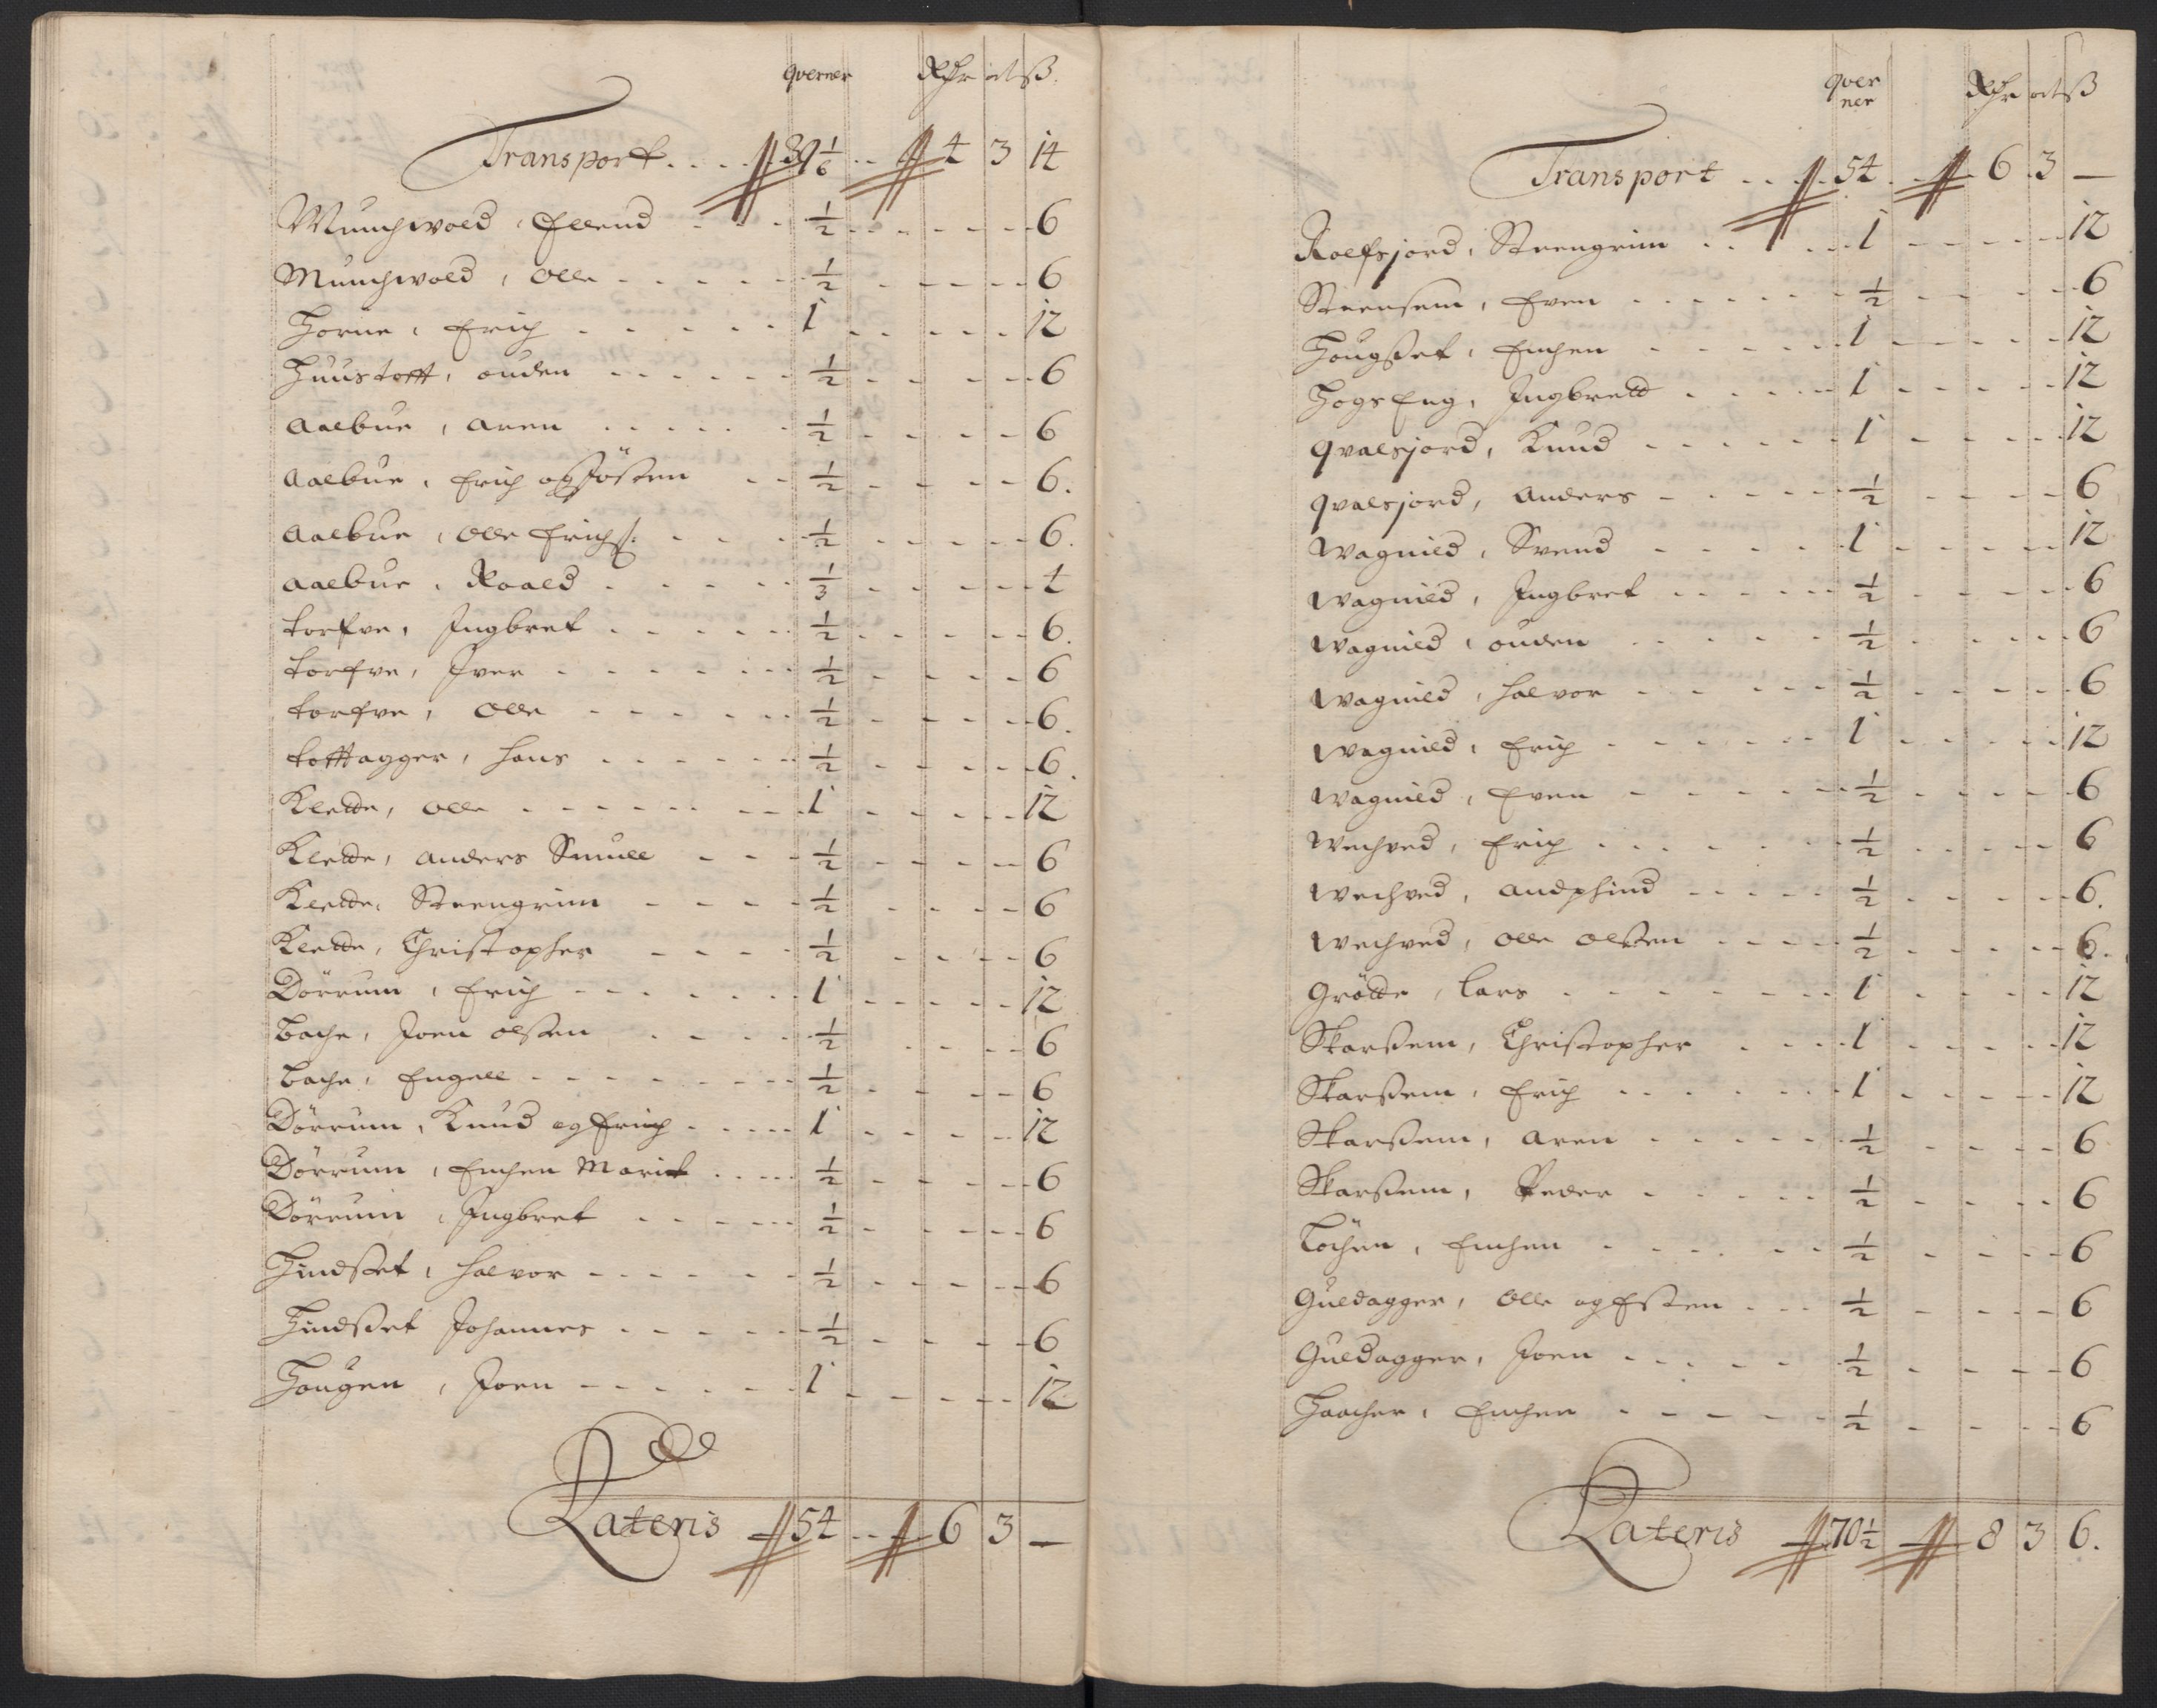 qverner Rdr ort ß
Transport . . . . 39 1/6 . . 4 3 14
Munchwold, Ellend - - - 1/2 - - - 6
Munchwold, Olle - - - 1/2 - - - 6
Horne, Erich - - - 1 - - - 12
Huustofft, ouden - - - 1/2 - - - 6
Aalbue, Aren - - - 1/2 - - - 6
Aalbue, Erich og Jösten - - 1/2 - - - 6.
Aalbue, Olle Erichs: - - - 1/2 - - - 6.
Aalbue, Roald - - - 1/3 - - - 4
torfve, Ingbret - - - 1/2 - - - 6.
torfve, Iver - - - 1/2 - - - 6
torfve, Olle - - - 1/2 - - - 6.
tofftagger, hans - - - 1/2 - - - 6.
Klette, Olle - - - 1 - - - 12
Klette, Anders Smull - - - 1/2 - - - 6
Klette, Steengrim - - - 1/2 - - - 6
Klette, Christopher - - - 1/2 - - - 6
Dörrum, Erich - - - 1 - - - 12
Bache, Joen olsten - - - 1/2 - - - 6
Bache, Engell - - - 1/2 - - - 6
Dörrum, Knud og Erich - - - 1 - - - 12
Dörrum, Enchen Marit - - - 1/2 - - - 6
Dörrum, Ingbret - - - 1/2 - - - 6
Hindset, halvor - - - 1/2 - - - 6
Hindset Johannes - - - 1/2 - - - 6
Hougen, Joen - - - 1 - - - 12
Lateris 54 - - 6 3 —
qver
ner Rdr ort ß
Transport . . . 54 . 6 3 —
Rolfsjord, Steengrim - - - 1 - - - 12
Steensem, Even - - - 1/2 - - - 6
Hougset, Enchen - - - 1 - - - 12
Hogseng, Ingbrett - - - 1 - - - 12
qvalsjord, Knud - - - 1 - - - 12
qvalsjord, Anders - - - 1/2 - - - 6
Wagnild, Svend - - - 1 - - - 12
Wagnild, Ingbret - - - 1/2 - - - 6
Wagnild, ouden - - - 1/2 - - - 6
Wagnild, halvor - - - 1/2 - - - 6
Wagnild, Erich - - - 1 - - - 12
Wagnild, Even - - - 1/2 - - - 6
Wechved, Erich - - - 1/2 - - - 6
Wechved, Andphind - - - 1/2 - - - 6.
Wechved, Olle Olsten - - - 1/2 - - - 6.
Grötte, Lars - - - 1 - - - 12
Skarsem, Christopher - - - 1 - - - 12
Skarsem, Erich - - - 1 - - - 12
Skarsem, Aren - - - 1/2 - - - 6
Skarsem, Peder - - - 1/2 - - - 6
Löchen, Enchen - - - 1/2 - - - 6
Guldagger, Olle og Esten - - - 1/2 - - - 6
Guldagger, Joen - - - 1/2 - - - 6
Haacher, Enchen - - - 1/2 - - - 6
Lateris 70 1/2 8 3 6.